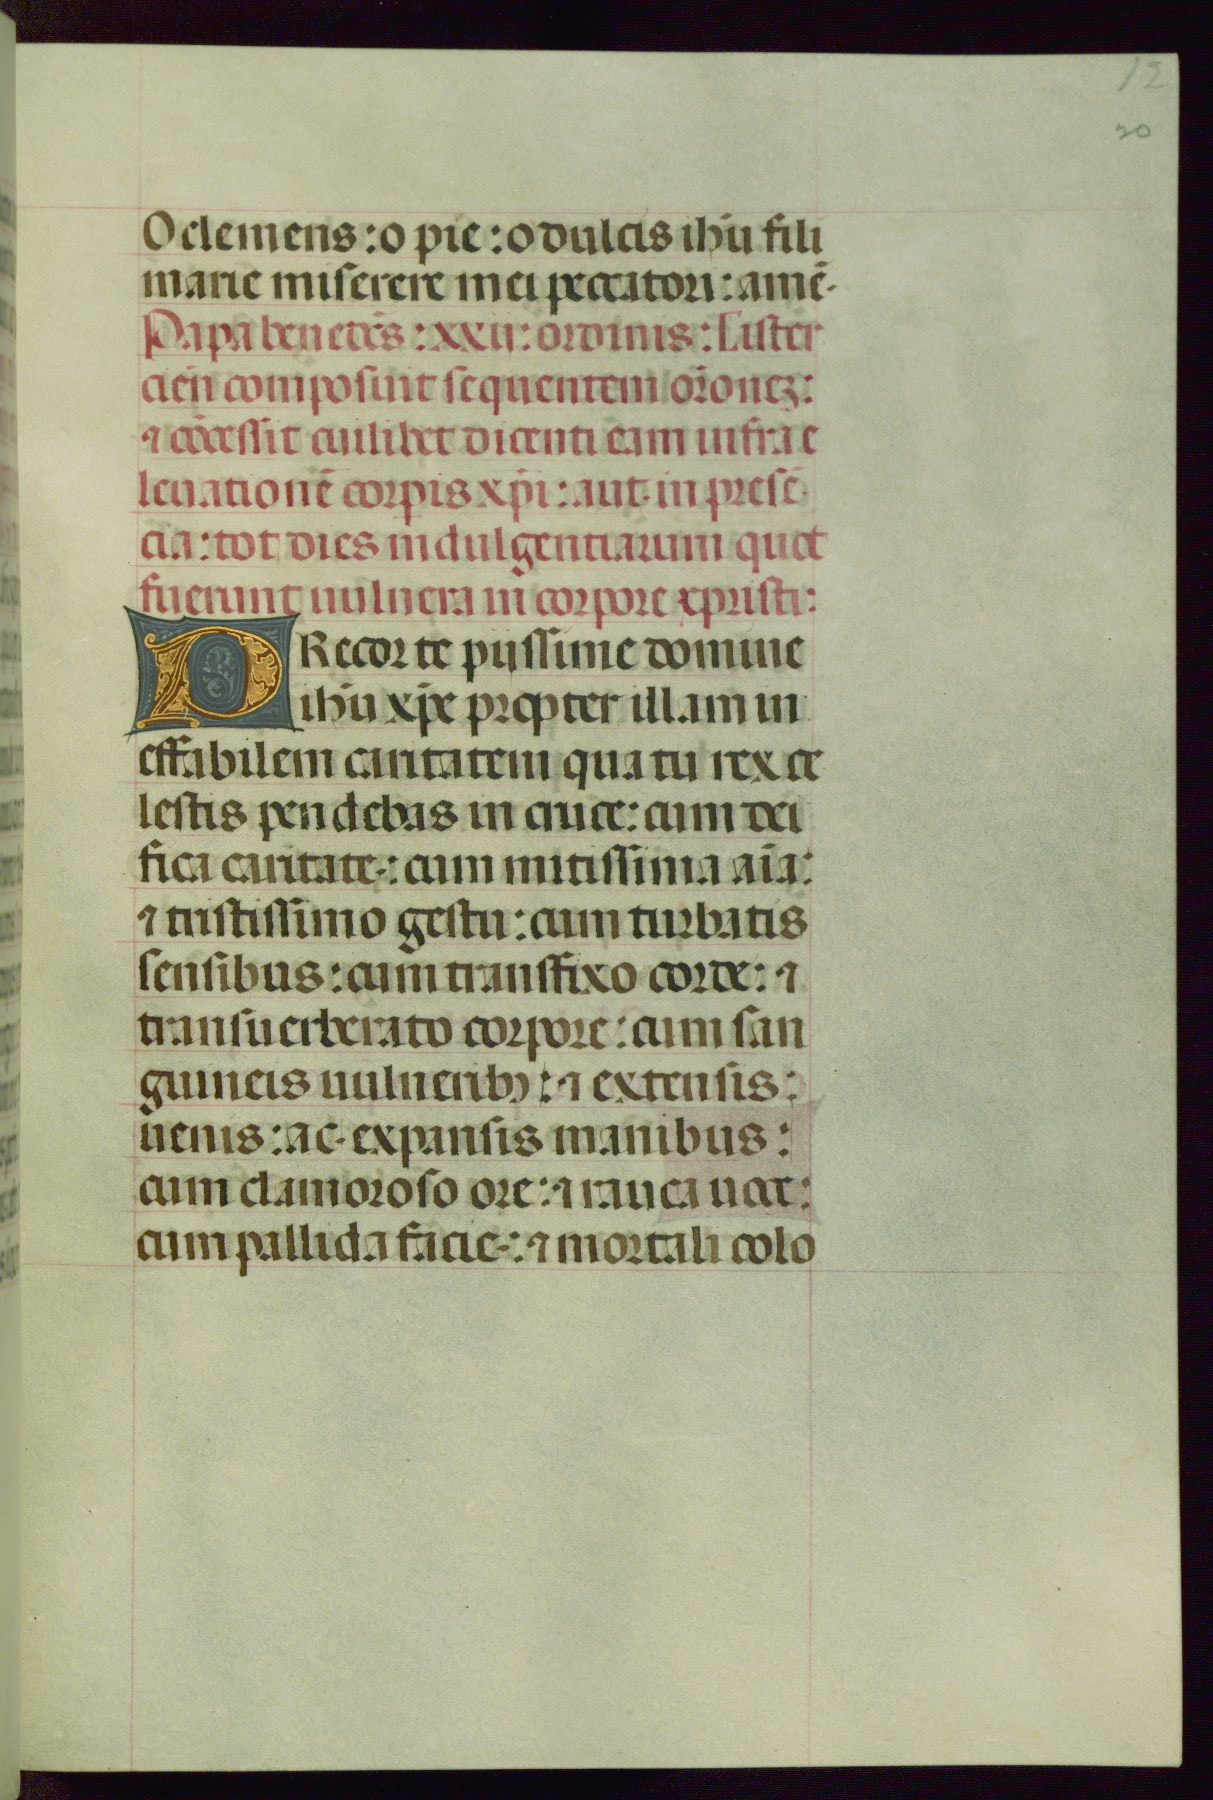 12
20
O clemens : o pie : o dulcis ihũ fili
marie miserere mei peccatori : amē.
Papa benedc̄s : xxii : ordinis : Cister
cień composuit sequentem or̄onez :
⁊ cōcessit cuilibet dicenti eam infra e
leuationē corpis xp̄i : aut in presē
cia : tot dies indulgentiarum quot
fuerunt uulnera in corpore xpristi :
PRecor te piissime domine
ihũ xp̄e propter illam in
effabilem caritatem qua tu rex ce
lestis pendebas in cruce : cum dei
fica caritate : cum mitissima aīa :
⁊ tristissimo gestu : cum turbatis
sensibus : cum transfixo corde : ⁊
transuerberato corpore : cum san
guineis uulneribꝫ : ⁊ extensis :
uenis : ac expansis manibus :
cum clamoroso ore : ⁊ rauca uoce :
cum pallida facie : ⁊ mortali colo